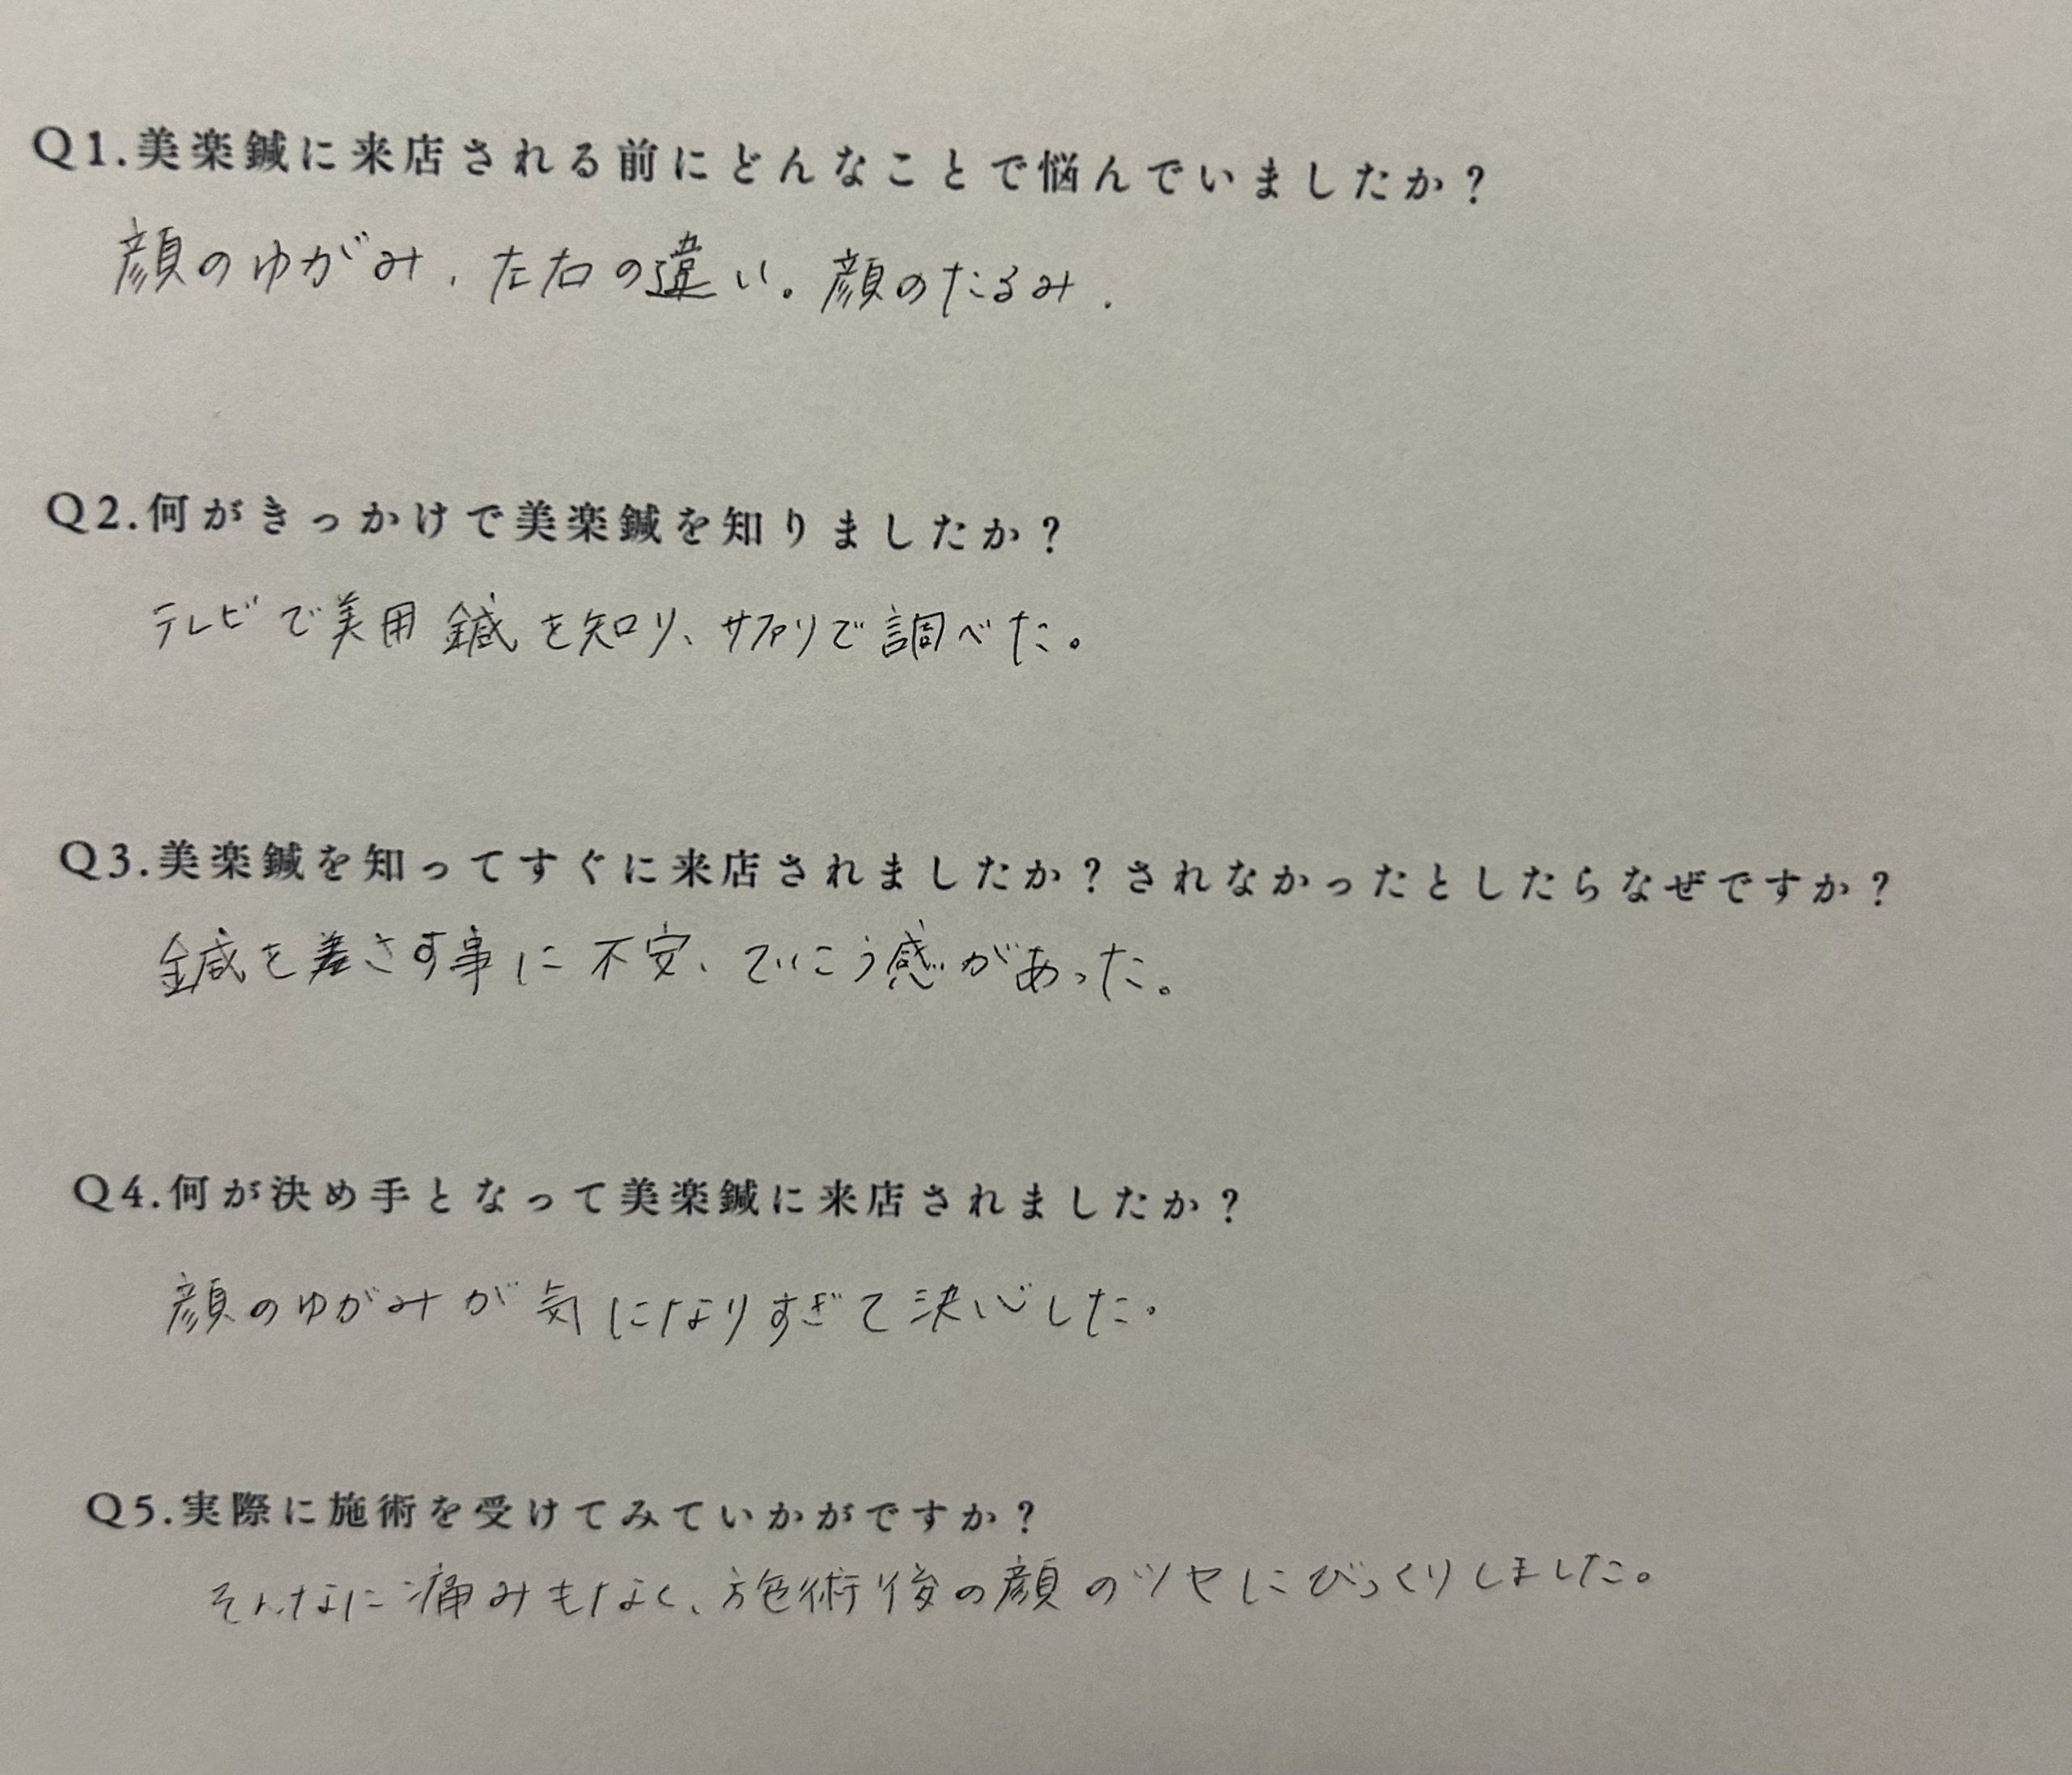 Q1.美楽鍼に来店される前にどんなことで悩んでいましたか？
顔のゆがみ、左右の違い。顔のたるみ.
Q2.何がきっかけで美楽鍼を知りましたか？
テレビで美用鍼を知り、サファリで調べた。
Q3.美楽鍼を知ってすぐに来店されましたか？されなかったとしたらなぜですか？
鍼を差さす事に不安、ていこう感があった。
Q4.何が決め手となって美楽鍼に来店されましたか？
顔のゆがみが気になりすぎて決心した.
Q5.実際に施術を受けてみていかがですか？
そんなに痛みもなく、施術後の顔のツヤにびっくりしました。